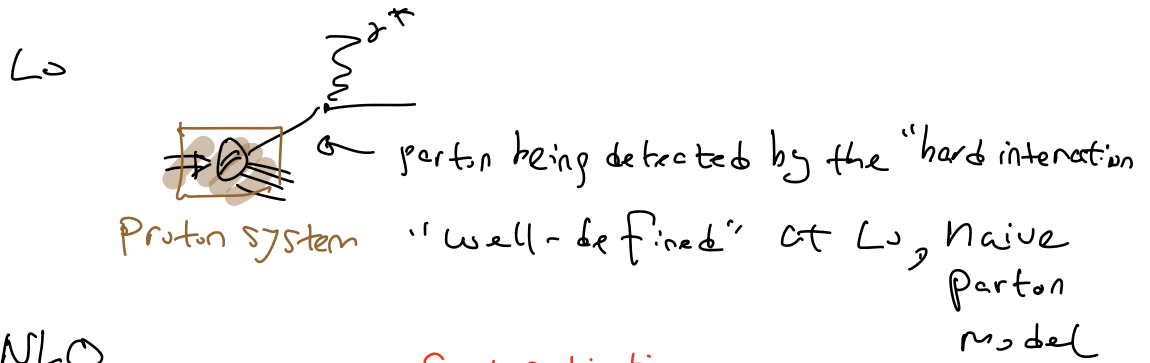 LO
γ*
parton being detected by the "hard interation
Proton system "well-defined" at LO, naive
parton
model
NLO